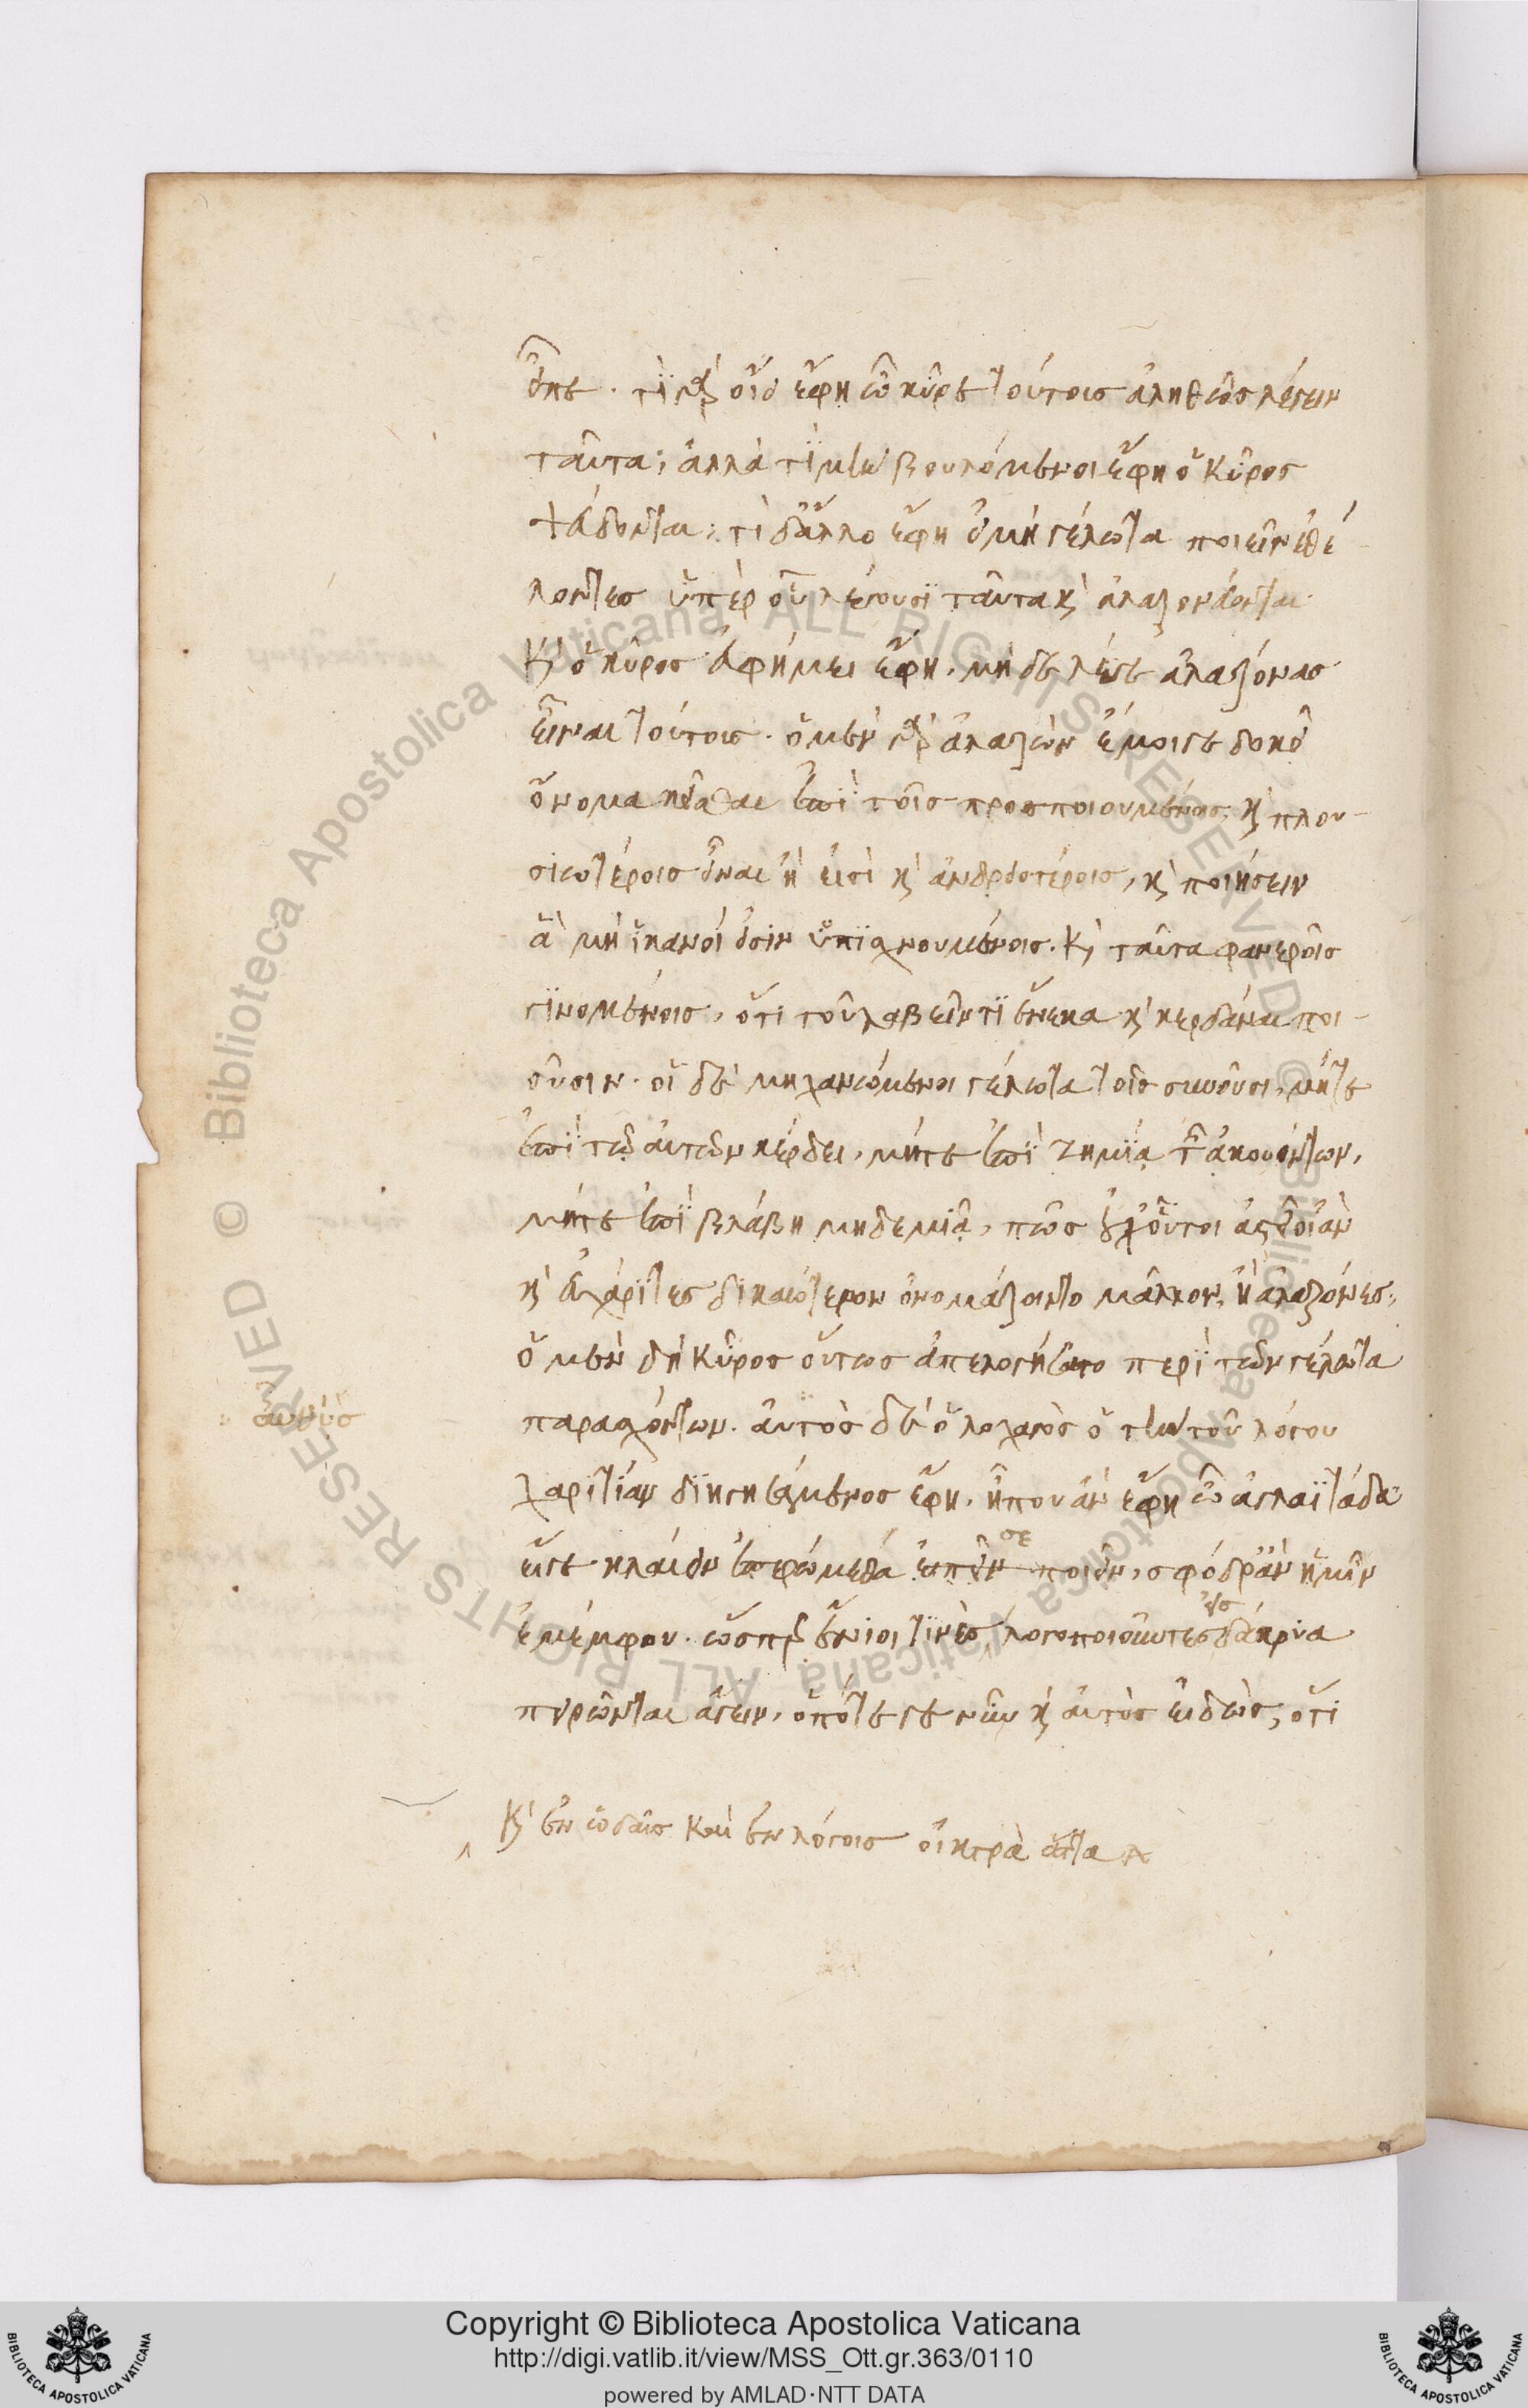 εἶπε. τί γὰρ οἴει ἔφη ὦ κῦρε τούτοις ἀληθῶς λέγειν
ταῦτα; ἀλλὰ τί μὴν βουλόμενοι ἔφη ὁ Κῦρος
ψεύδονται; τί δ' ἄλλο ἔφη εἰ μὴ γέλωτα ποιεῖν ἐθέ
λοντες ὑπὲρ οὗ λέγουσι ταῦτα καὶ ἀλαζονεύονται.
Καὶ ὁ κῦρος εὐφήμει ἔφη. μηδὲ λέγε ἀλαζόνας
εἶναι τούτοις. ὁ μὲν γὰρ ἀλαζὼν ἐμοί γε δοκεῖ
ὄνομα κεῖσθαι ἐπὶ τοῖς προσποιουμένοις, καὶ πλου-
σιωτέροις εἶναι ἢ εἰσὶ καὶ ἀνδρειοτέροις, καὶ ποιήσειν
ἃ μὴ ἱκανοί εἰσιν ὑπισχνουμένοις. Καὶ ταῦτα φανεροῖς
γινομένοις, ὅτι τοῦ λαβεῖν τι ἕνεκα καὶ κερδάναι ποι-
οῦσιν. οἱ δὲ μηχανώμενοι γέλωτα τοῖς συνοῦσι, μήτε
ἐπὶ τῷ αὑτῶν κέρδει, μήτε ἐπὶ ζημίᾳ τῶν ἀκουόντων,
μήτε ἐπὶ βλάβῃ μηδεμιᾷ, πῶς οὐχ οὗτοι ἀστεῖοι ἂν
καὶ εὐχάριτες δικαιότερον ὀνομάζοιντο μᾶλλον, ἢ ἀλαζόνες;
ὁ μὲν δὴ Κῦρος οὕτως ἀπελογήσατο περὶ τῶν γέλωτα
παρασχόντων. αὐτὸς δὲ ὁ λοχαγὸς ὁ τὴν τοῦ λόγου
χαριτίαν διηγησάμενος ἔφη. ἦπου ἂν ἔφη ὦ ἀγλαϊτάδα
εἴγε κλαίειν ἐπειρώμεθά σε ποιεῖν, σφόδρ' ἂν ἡμῖν
ἐμέμφου. ὥσπερ ἔνιοι τινὲς λογοποιοῦντες εἰς δάκρυα
πειρῶνται ἄγειν, ὁπότε γε νῦν καὶ αὐτὸς εἰδὼς, ὅτι
καὶ ἐν ᾠδαῖς καὶ ἐν λόγοις οἰκτρὰ ἄττα